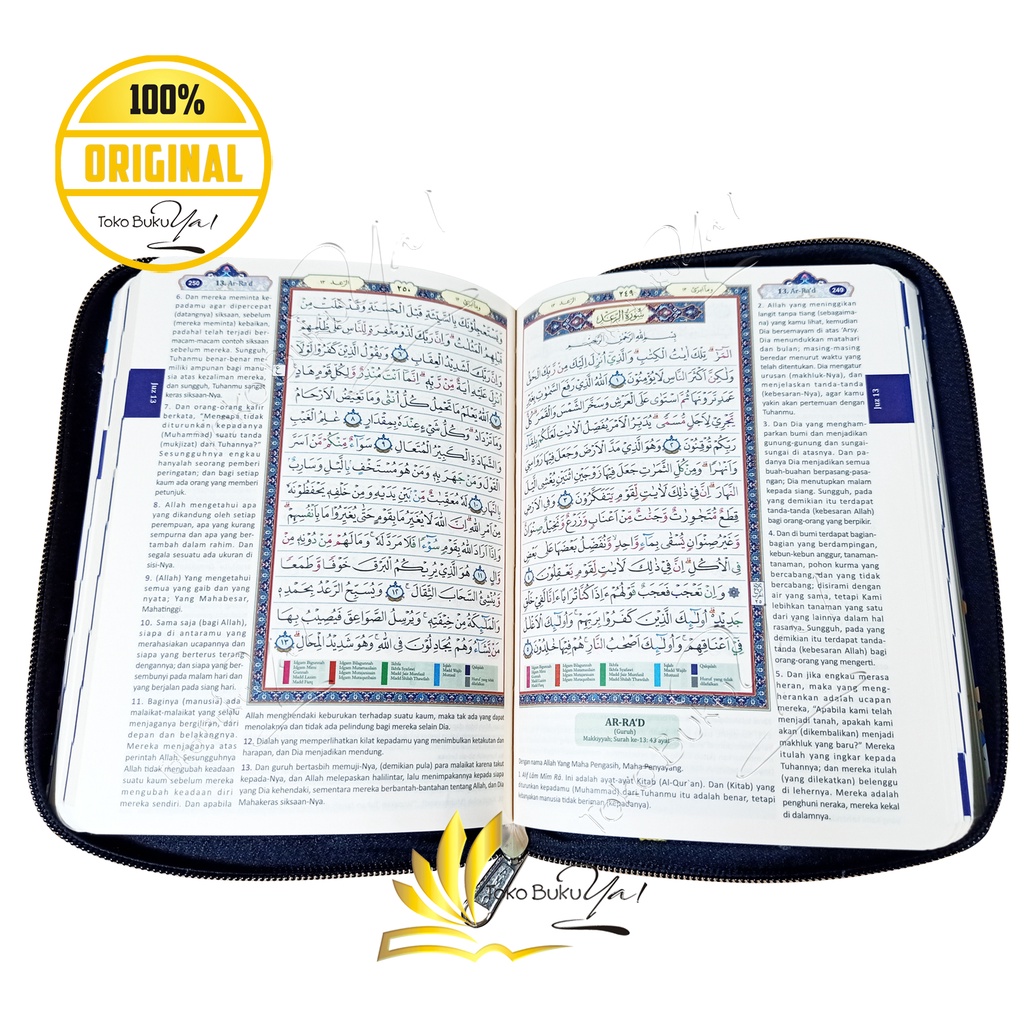 100%
ORIGINAL
Toko Buku Ya!
13. Ar-Ra'd 249
Juz 13
٢٤٩
سُورَةُ الرَّعْدِ
بِسْمِ اللّٰهِ الرَّحْمٰنِ الرَّحِيْمِ
الۤمّۤرٰۗ تِلْكَ اٰيٰتُ الْكِتٰبِۗ وَالَّذِيْٓ اُنْزِلَ اِلَيْكَ مِنْ رَّبِّكَ الْحَقُّ
وَلٰكِنَّ اَكْثَرَ النَّاسِ لَا يُؤْمِنُوْنَ ١ اَللّٰهُ الَّذِيْ رَفَعَ السَّمٰوٰتِ بِغَيْرِ
عَمَدٍ تَرَوْنَهَا ثُمَّ اسْتَوٰى عَلَى الْعَرْشِ وَسَخَّرَ الشَّمْسَ وَالْقَمَرَۗ كُلٌّ
يَّجْرِيْ لِاَجَلٍ مُّسَمًّىۗ يُدَبِّرُ الْاَمْرَ يُفَصِّلُ الْاٰيٰتِ لَعَلَّكُمْ بِلِقَاۤءِ
رَبِّكُمْ تُوْقِنُوْنَ ٢ وَهُوَ الَّذِيْ مَدَّ الْاَرْضَ وَجَعَلَ فِيْهَا رَوَاسِيَ
وَاَنْهٰرًاۗ وَمِنْ كُلِّ الثَّمَرٰتِ جَعَلَ فِيْهَا زَوْجَيْنِ اثْنَيْنِ يُغْشِى الَّيْلَ
النَّهَارَۗ اِنَّ فِيْ ذٰلِكَ لَاٰيٰتٍ لِّقَوْمٍ يَّتَفَكَّرُوْنَ ٣ وَفِى الْاَرْضِ
قِطَعٌ مُّتَجٰوِرٰتٌ وَّجَنّٰتٌ مِّنْ اَعْنَابٍ وَّزَرْعٌ وَّنَخِيْلٌ صِنْوَانٌ
وَّغَيْرُ صِنْوَانٍ يُّسْقٰى بِمَاۤءٍ وَّاحِدٍۙ وَّنُفَضِّلُ بَعْضَهَا عَلٰى بَعْضٍ
فِى الْاُكُلِۗ اِنَّ فِيْ ذٰلِكَ لَاٰيٰتٍ لِّقَوْمٍ يَّعْقِلُوْنَ ٤
۞ وَاِنْ تَعْجَبْ فَعَجَبٌ قَوْلُهُمْ ءَاِذَا كُنَّا تُرٰبًا ءَاِنَّا لَفِيْ خَلْقٍ
جَدِيْدٍ ەۗ اُولٰۤىِٕكَ الَّذِيْنَ كَفَرُوْا بِرَبِّهِمْۚ وَاُولٰۤىِٕكَ الْاَغْلٰلُ
فِيْٓ اَعْنَاقِهِمْۚ وَاُولٰۤىِٕكَ اَصْحٰبُ النَّارِۚ هُمْ فِيْهَا خٰلِدُوْنَ ٥
AR-RA'D
(Guruh)
Makkiyyah, Surah ke-13: 43 ayat
Dengan nama Allah Yang Maha Pengasih, Maha Penyayang.
1. Alif Lām Mīm Rā. Ini adalah ayat-ayat Kitab (Al-Qur`an). Dan (Kitab) yang
diturunkan kepadamu (Muhammad) dari Tuhanmu itu adalah benar, tetapi
kebanyakan manusia tidak beriman (kepadanya).
2. Allah yang meninggikan
langit tanpa tiang (sebagaima-
na) yang kamu lihat, kemudian
Dia bersemayam di atas 'Arsy.
Dia menundukkan matahari
dan bulan; masing-masing
beredar menurut waktu yang
telah ditentukan. Dia mengatur
urusan (makhluk-Nya), dan
menjelaskan tanda-tanda
(kebesaran-Nya), agar kamu
yakin akan pertemuan dengan
Tuhanmu.
3. Dan Dia yang menghham-
parkan bumi dan menjadikan
gunung-gunung dan sungai-
sungai di atasnya. Dan pa-
danya Dia menjadikan semua
buah-buahan berpasang-pasang-
an; Dia menutupkan malam
kepada siang. Sungguh, pada
yang demikian itu terdapat
tanda-tanda (kebesaran Allah)
bagi orang-orang yang berpikir.
4. Dan di bumi terdapat bagian-
bagian yang berdampingan,
kebun-kebun anggur, tanaman-
tanaman, pohon kurma yang
bercabang, dan yang tidak
bercabang; disirami dengan
air yang sama, tetapi Kami
lebihkan tanaman yang satu
dari yang lainnya dalam hal
rasanya. Sungguh, pada yang
demikian itu terdapat tanda-
tanda (kebesaran Allah) bagi
orang-orang yang mengerti.
5. Dan jika engkau merasa
heran, maka yang meng-
herankan adalah ucapan
mereka, "Apabila kami telah
menjadi tanah, apakah kami
akan (dikembalikan) menjadi
makhluk yang baru?" Mereka
itulah yang ingkar kepada
Tuhannya; dan mereka itulah
(yang dilekatkan) belenggu
di lehernya. Mereka adalah
penghuni neraka, mereka kekal
di dalamnya.
250 13. Ar-Ra'd
Juz 13
٢٥٠
وَيَسْتَعْجِلُوْنَكَ بِالسَّيِّئَةِ قَبْلَ الْحَسَنَةِ وَقَدْ خَلَتْ مِنْ
قَبْلِهِمُ الْمَثُلٰتُۗ وَاِنَّ رَبَّكَ لَذُوْ مَغْفِرَةٍ لِّلنَّاسِ عَلٰى ظُلْمِهِمْۚ
وَاِنَّ رَبَّكَ لَشَدِيْدُ الْعِقَابِ ٦ وَيَقُوْلُ الَّذِيْنَ كَفَرُوْا لَوْلَآ
اُنْزِلَ عَلَيْهِ اٰيَةٌ مِّنْ رَّبِّهٖۗ اِنَّمَآ اَنْتَ مُنْذِرٌ وَّلِكُلِّ قَوْمٍ هَادٍ
٧ اَللّٰهُ يَعْلَمُ مَا تَحْمِلُ كُلُّ اُنْثٰى وَمَا تَغِيْضُ الْاَرْحَامُ
وَمَا تَزْدَادُۗ وَكُلُّ شَيْءٍ عِنْدَهٗ بِمِقْدَارٍ ٨ عٰلِمُ الْغَيْبِ
وَالشَّهَادَةِ الْكَبِيْرُ الْمُتَعَالِ ٩ سَوَاۤءٌ مِّنْكُمْ مَّنْ اَسَرَّ
الْقَوْلَ وَمَنْ جَهَرَ بِهٖ وَمَنْ هُوَ مُسْتَخْفٍۢ بِالَّيْلِ وَسَارِبٌۢ
بِالنَّهَارِ ١٠ لَهٗ مُعَقِّبٰتٌ مِّنْۢ بَيْنِ يَدَيْهِ وَمِنْ خَلْفِهٖ يَحْفَظُوْنَهٗ
مِنْ اَمْرِ اللّٰهِۗ اِنَّ اللّٰهَ لَا يُغَيِّرُ مَا بِقَوْمٍ حَتّٰى يُغَيِّرُوْا مَا بِاَنْفُسِهِمْۗ
وَاِذَآ اَرَادَ اللّٰهُ بِقَوْمٍ سُوْۤءًا فَلَا مَرَدَّ لَهٗۚ وَمَا لَهُمْ مِّنْ دُوْنِهٖ مِنْ
وَّالٍ ١١ هُوَ الَّذِيْ يُرِيْكُمُ الْبَرْقَ خَوْفًا وَّطَمَعًا
وَّيُنْشِئُ السَّحَابَ الثِّقَالَۚ ١٢ وَيُسَبِّحُ الرَّعْدُ بِحَمْدِهٖ
وَالْمَلٰۤىِٕكَةُ مِنْ خِيْفَتِهٖۚ وَيُرْسِلُ الصَّوَاعِقَ فَيُصِيْبُ بِهَا
مَنْ يَّشَاۤءُ وَهُمْ يُجَادِلُوْنَ فِى اللّٰهِۚ وَهُوَ شَدِيْدُ الْمِحَالِۗ ١٣
6. Dan mereka meminta ke-
padamu agar dipercepat
(datangnya) siksaan, sebelum
(mereka meminta) kebaikan,
padahal telah terjadi ber-
macam-macam contoh siksaan
sebelum mereka. Sungguh,
Tuhanmu benar-benar me-
miliki ampunan bagi manu-
sia atas kezaliman mereka,
dan sungguh, Tuhanmu sangat
keras siksaan-Nya.
7. Dan orang-orang kafir
berkata, "Mengapa tidak
diturunkan kepadanya
(Muhammad) suatu tanda
(mukjizat) dari Tuhannya?"
Sesungguhnya engkau
hanyalah seorang pemberi
peringatan; dan bagi setiap
kaum ada orang yang memberi
petunjuk.
8. Allah mengetahui apa
yang dikandung oleh setiap
perempuan, apa yang kurang
sempurna dan apa yang ber-
tambah dalam rahim. Dan
segala sesuatu ada ukuran di
sisi-Nya.
9. (Allah) Yang mengetahui
semua yang gaib dan yang
nyata; Yang Mahabesar,
Mahatinggi.
10. Sama saja (bagi Allah),
siapa di antaramu yang
merahasiakan ucapannya dan
siapa yang berterus terang
dengannya; dan siapa yang ber-
sembunyi pada malam hari dan
yang berjalan pada siang hari.
11. Baginya (manusia) ada
malaikat-malaikat yang selalu
menjaganya bergiliran, dari
depan dan belakangnya.
Mereka menjaganya atas
perintah Allah. Sesungguhnya
Allah tidak mengubah keadaan
suatu kaum sebelum mereka
mengubah keadaan diri
mereka sendiri. Dan apabila
Allah menghendaki keburukan terhadap suatu kaum, maka tak ada yang dapat
menolaknya dan tidak ada pelindung bagi mereka selain Dia.
12. Dialah yang memperlihatkan kilat kepadamu yang menimbulkan ketakutan dan
harapan, dan Dia menjadikan mendung.
13. Dan guruh bertasbih memuji-Nya, (demikian pula) para malaikat karena takut
kepada-Nya, dan Allah melepaskan halilintar, lalu menimpakannya kepada siapa
yang Dia kehendaki, sementara mereka berbantah-bantahan tentang Allah, dan Dia
Mahakeras siksaan-Nya.
Toko Buku Ya!